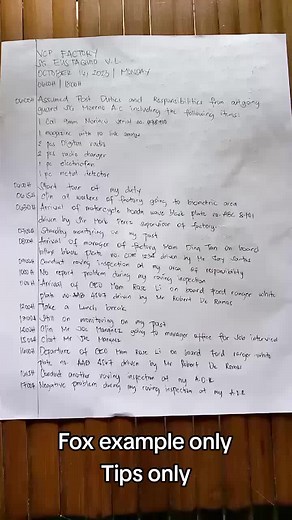 VCP FACTORY
SG. EUSTAQUIO V.L.
OCTOBER 16, 2023 / MONDAY
0600H / 1800H
0600H Assumed Post Duties and Responsibilities from outgoing
guard SG Moreno A.C including the following items:
1 Cal 9mm serial no.
1 magazine with ammo
2 pcs Digital radio
2 pcs radio charger
1 pc electricfan
1 pc metal detector
0600H Start tour of my duty
0615H All workers of factory going to biometric area
0650H Arrival of motorcycle honda wave black plate no. ABC
driven by Sir Perez supervisor of factory.
0700H Standby monitoring in my post
0800H Arrival of manager of factory Mam Ting Tan on board
white plate no. driven by Mr Tony Santos
0900H Conduct roving inspection at my area of responsibility
1000H No report problem during my roving inspection
1101H Arrival of CEO Mam Rose Li on board ford ranger white
plate no. AAB 4567 driven by Mr Robert De Ramos
1200H Make a lunch break
1300H Still on monitoring on my post
1400H Mr Joe Marquez going to manager office for Job interview
1500H Mr Joe Marquez
1600H Departure of CEO Mam Rose Li on board ford ranger white
plate no. AAB 4567 driven by Mr Robert De Ramos
Conduct another roving inspection at my A.O.R
1700H Negative problem during my roving inspection at my A.O.R
Fox example only
Tips only